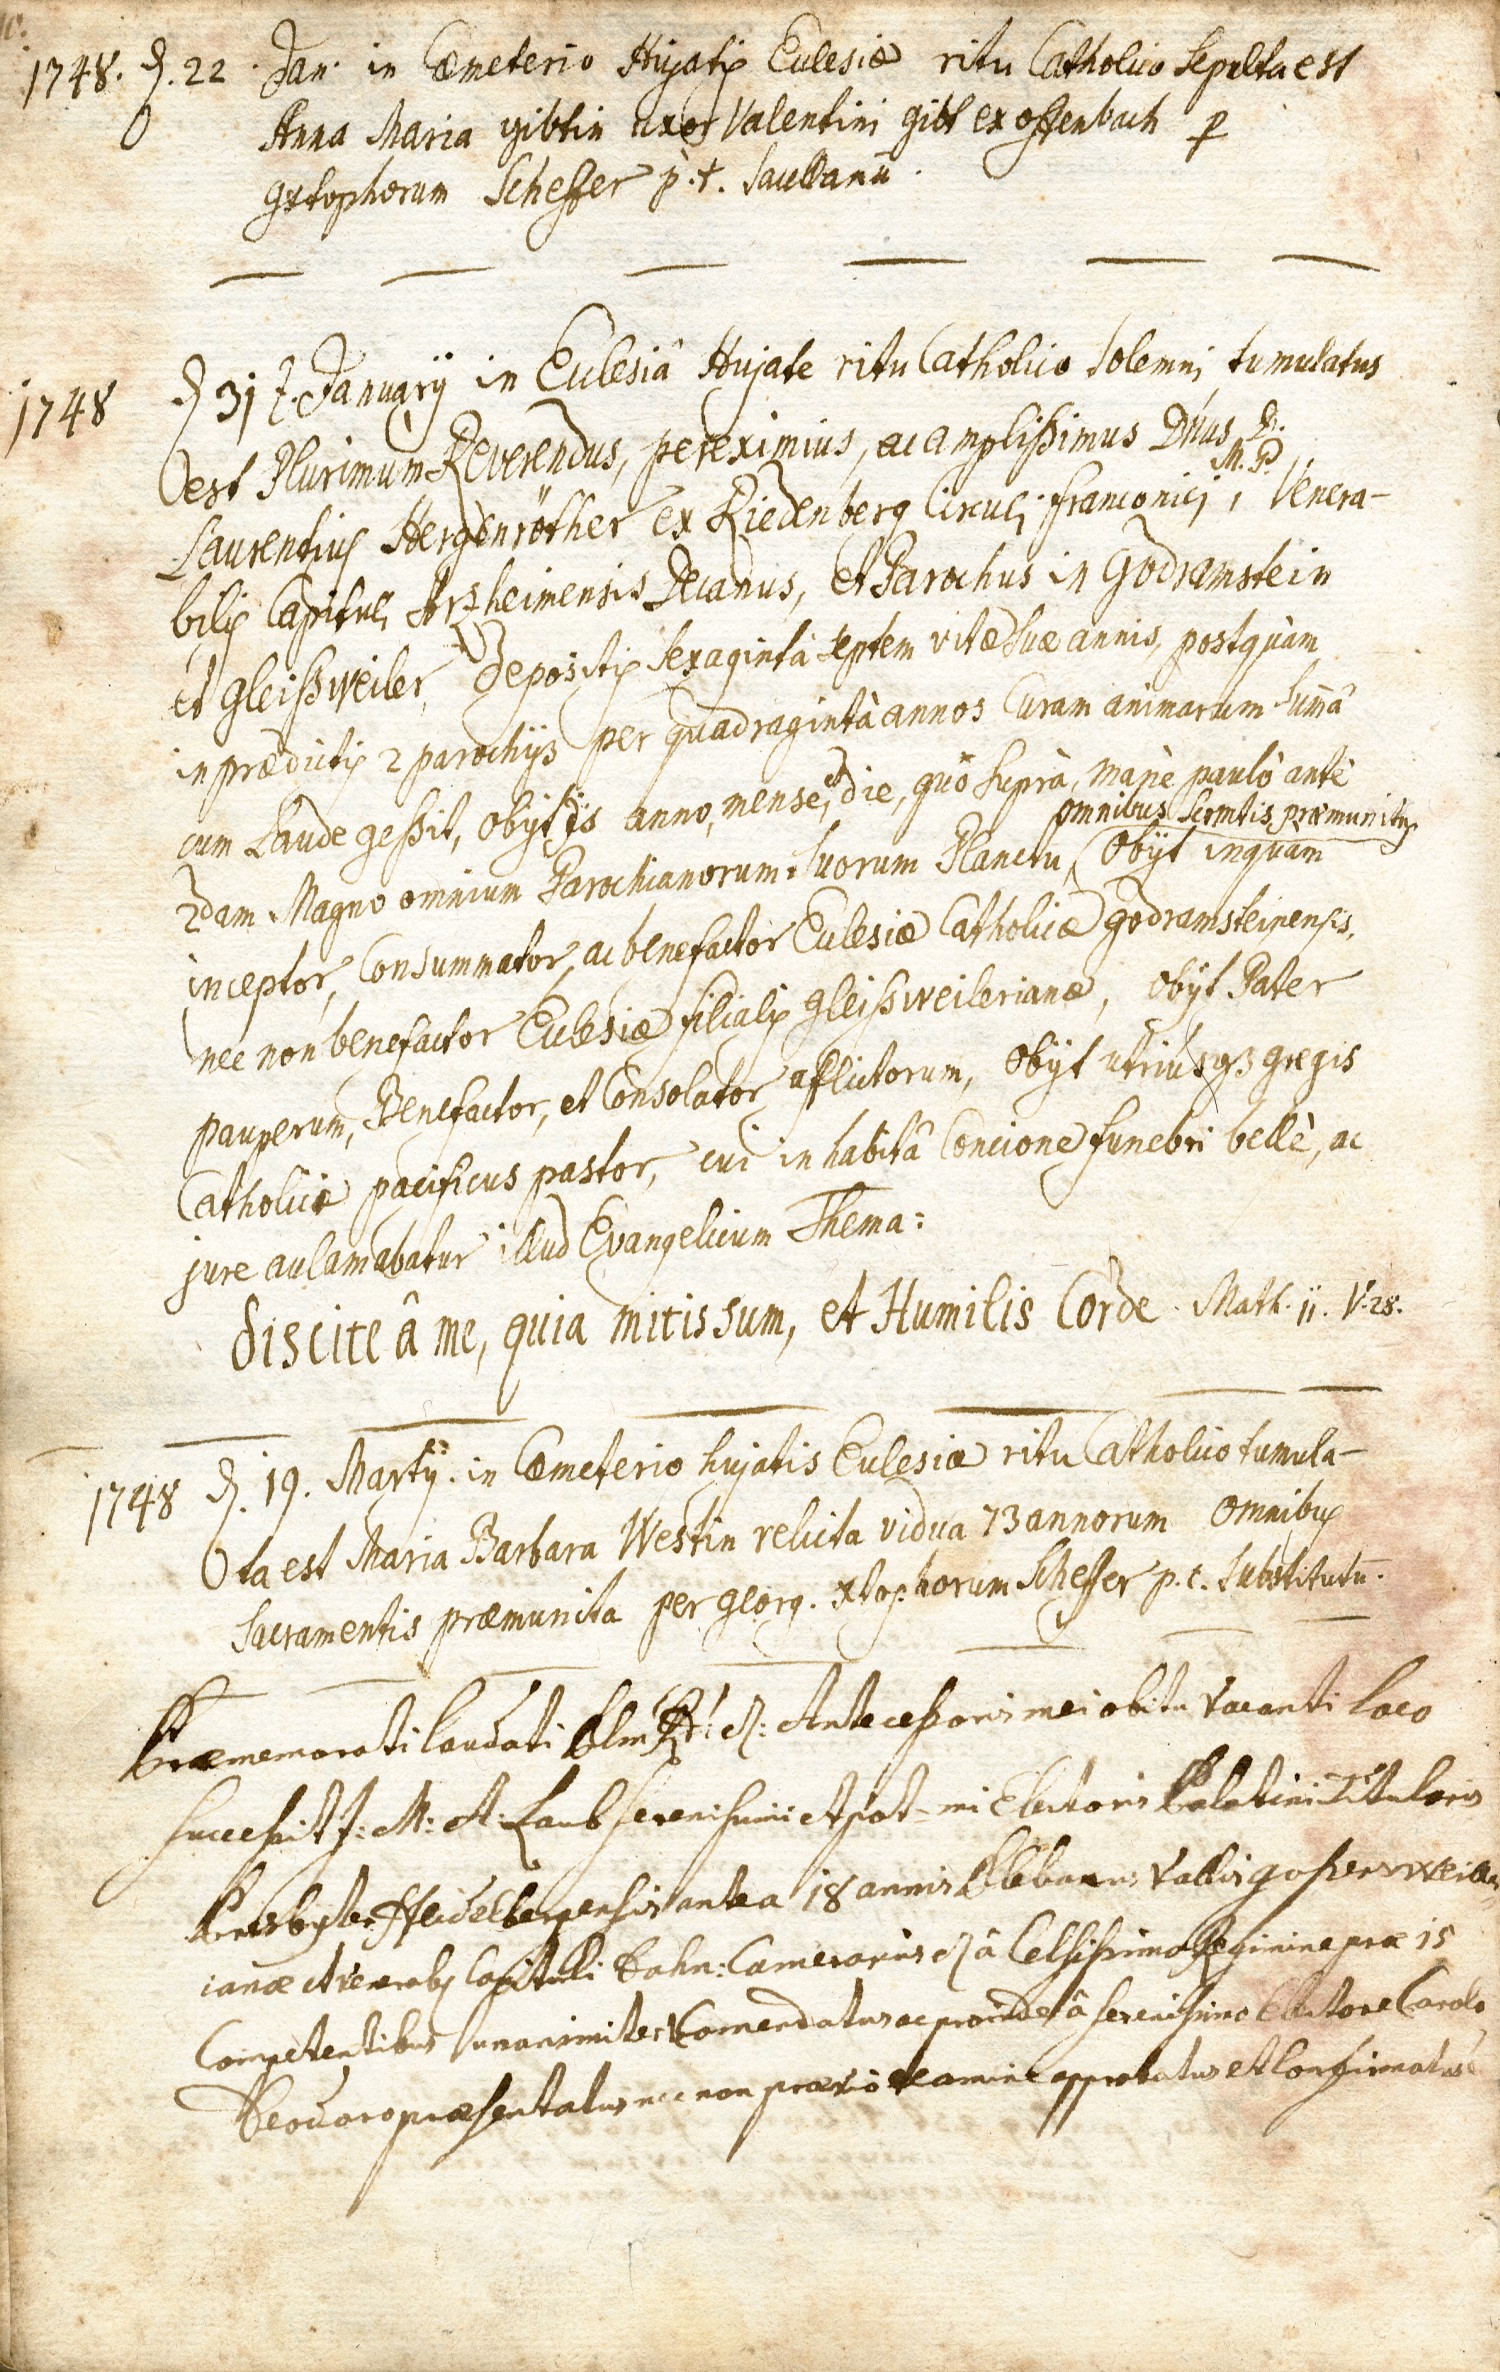 1748. D. 22 Jan. in Cæmeterio Hujatis Ecclesiæ ritu Catholico Sepulta est
Anna Maria gibtin uxor Valentini gibt ex offenbach p
Gxtophorum Scheffer p. t. Sacellanū.
1748 D 31 t. Januarÿ in Ecclesiâ Hujate ritu Catholico Solemni tumulatus
est Plurimum Reverendus, perexímius, ac amplissimus Dnus D.
M. P.
Laurentius Hergenröther ex Riedenberg Circuli franconici, Venera-
bilis Capituli Arzheimensis Decanus, et Parochus in Godramstein
et gleissweiler, Depositis Sexagintà septem vitæ suæ annis, postquàm
in prædictis 2 parochijs per quadragintà annos Curam animarum Summâ
cum Laude gessit, obijt is anno, mense, et die, quô suprà, manè paulò antè
2dam Magno omnium Parochianorum suorum Planctu, omnibus Scrmtis præmunitus
obijt inquam
inceptor, Consummator, ac benefactor Ecclesiæ Catholicæ godramsteinensis,
nec non benefactor Ecclesiæ filialis gleissweilerianæ, obijt Pater
pauperum, Benefactor, et Consolator afflictorum, obijt utriusq3 gregis
Catholici pacificus pastor, cui in habitâ Concione funebri bellè, ac
jure aclamabatur illud Evangelicum Thema:
discite â me, quia mitis sum, et Humilis Corde. Math. 11. V. 28.
1748 D. 19. Martÿ. in Cæmeterio hujatis Ecclesiæ ritu Catholico tumula-
ta est Maria Barbara Westin relicta vidua 73 annorum omnibus
Sacramentis præmunita per georg. xtophorum Scheffer p. t. Substitutū.
Præmemorati laudati Plm Rdi D: Antecessoris mei obitu vacanti loco
successit J: M: A: Laub serenissimi et pot-mi Electoris Palatini Titularis
Presbyter Heidelbergensis antea 18 annis Plebanus Vallis gossersweiller
ianæ et venerab. Capituli Dahn: Camerarius à Celsissimo Regimine præ 15
Competentibus unanimiter Comendatus ac proinde à serenissimo Electore Carolo
Theodoro præsentatus nec non prævio examine approbatus et Confirmatus